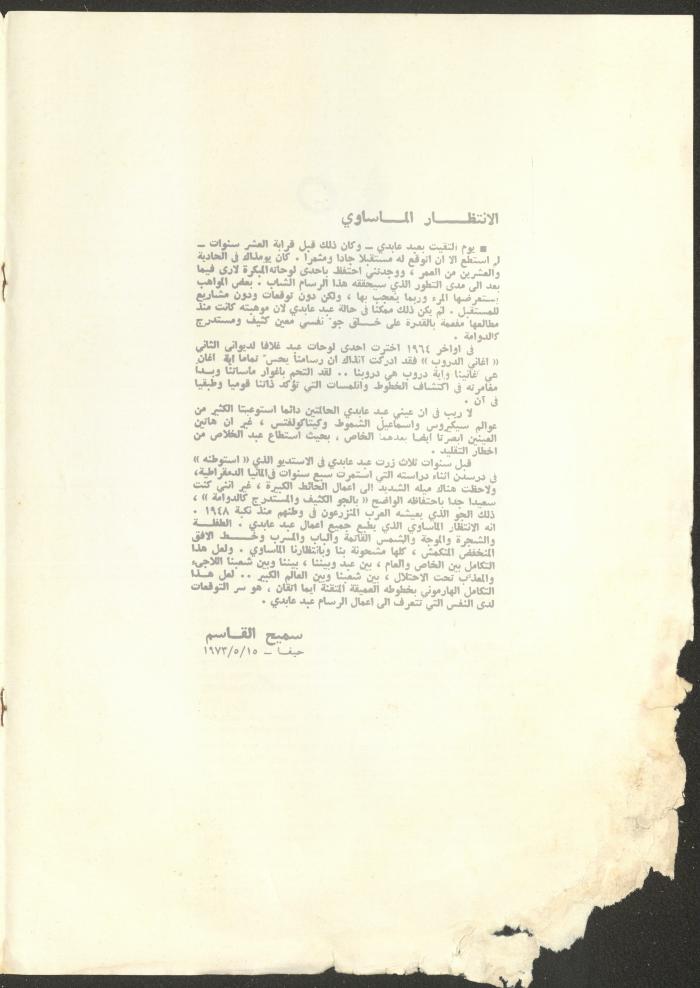 الانتظـــار المــاساوي
■ يوم التقيت بعبد عابدي ــ وكان ذلك قبل قرابة العشر سنوات ــ
لم استطع الا ان اتوقع له مستقبلا جادا ومثمرا . كان يومذاك في الحادية
والعشرين من العمر ، ووجدتني احتفظ باحدى لوحاته المبكرة لارى فيما
بعد الى مدى التطور الذي سيحققه هذا الرسام الشاب . ان بعض المواهب
يستعرضها المرء وربما يعجب بها ، ولكن دون توقعات ودون مشاريع
للمستقبل . لم يكن ذلك ممكنا في حالة عبد عابدي لان موهبته كانت منذ
مطالعها مفعمة بالقدرة على خــلق جو نفسي معين كثيف ومستدرج
كالدوامة .
في اواخر ١٩٦٤ اخترت احدى لوحات عبد غلافا لديواني الثاني
« اغاني الدروب » فقد ادركت آنذاك ان رسامنا يحس تماما اية اغان
هي اغانينا واية دروب هي دروبنا .. لقد التحم باغوار ماساتنا وبــدا
مغامرته في اكتشاف الخطوط واللمسات التي تؤكد ذاتنا قوميا وطبقيا
في آن .
لا ريب في ان عيني عبد عابدي الحالمتين دائما استوعبتا الكثير من
عوالم سيكيروس واسماعيل الشموط وكيتاكولفتس ، غير ان هاتين
العينين ابصرتا ايضا بعدهما الخاص ، بحيث استطاع عبد الخلاص من
اخطار التقليد .
قبل سنوات ثلاث زرت عبد عابدي في الاستديو الذي « استوطنه »
في درسدن اثناء دراسته التي استمرت سبع سنوات في المانيا الدمقراطية،
ولاحظت هناك ميله الشديد الى اعمال الحائط الكبيرة ، غير انني كنت
سعيدا جدا باحتفاظه الواضح « بالجو الكثيف والمستدرج كالدوامة » ،
ذلك الجو الذي يعيشه العرب المنزرعون في وطنهم منذ نكبة ١٩٤٨ .
انه الانتظار الماساوي الذي يطبع جميع اعمال عبد عابدي . الطفلــة
والشجرة والموجة والشمس القاتمة والباب والسرب وخــط الافق
المنخفض المنكمش ، كلها مشحونة بنا وبانتظارنا الماساوي . ولعل هذا
التكامل بين الخاص والعام ، بين عبد وبيننا ، بيننا وبين شعبنا اللاجىء
والمعذب تحت الاحتلال ، بين شعبنا وبين العالم الكبير .. لعل هــذا
التكامل الهارموني بخطوطه العميقة المتقنة ايما اتقان ، هو سر التوقعات
لدى النفس التي تتعرف الى اعمال الرسام عبد عابدي .
سميح القــاسم
حيفــا ــ ١٩٧٣/٥/١٥